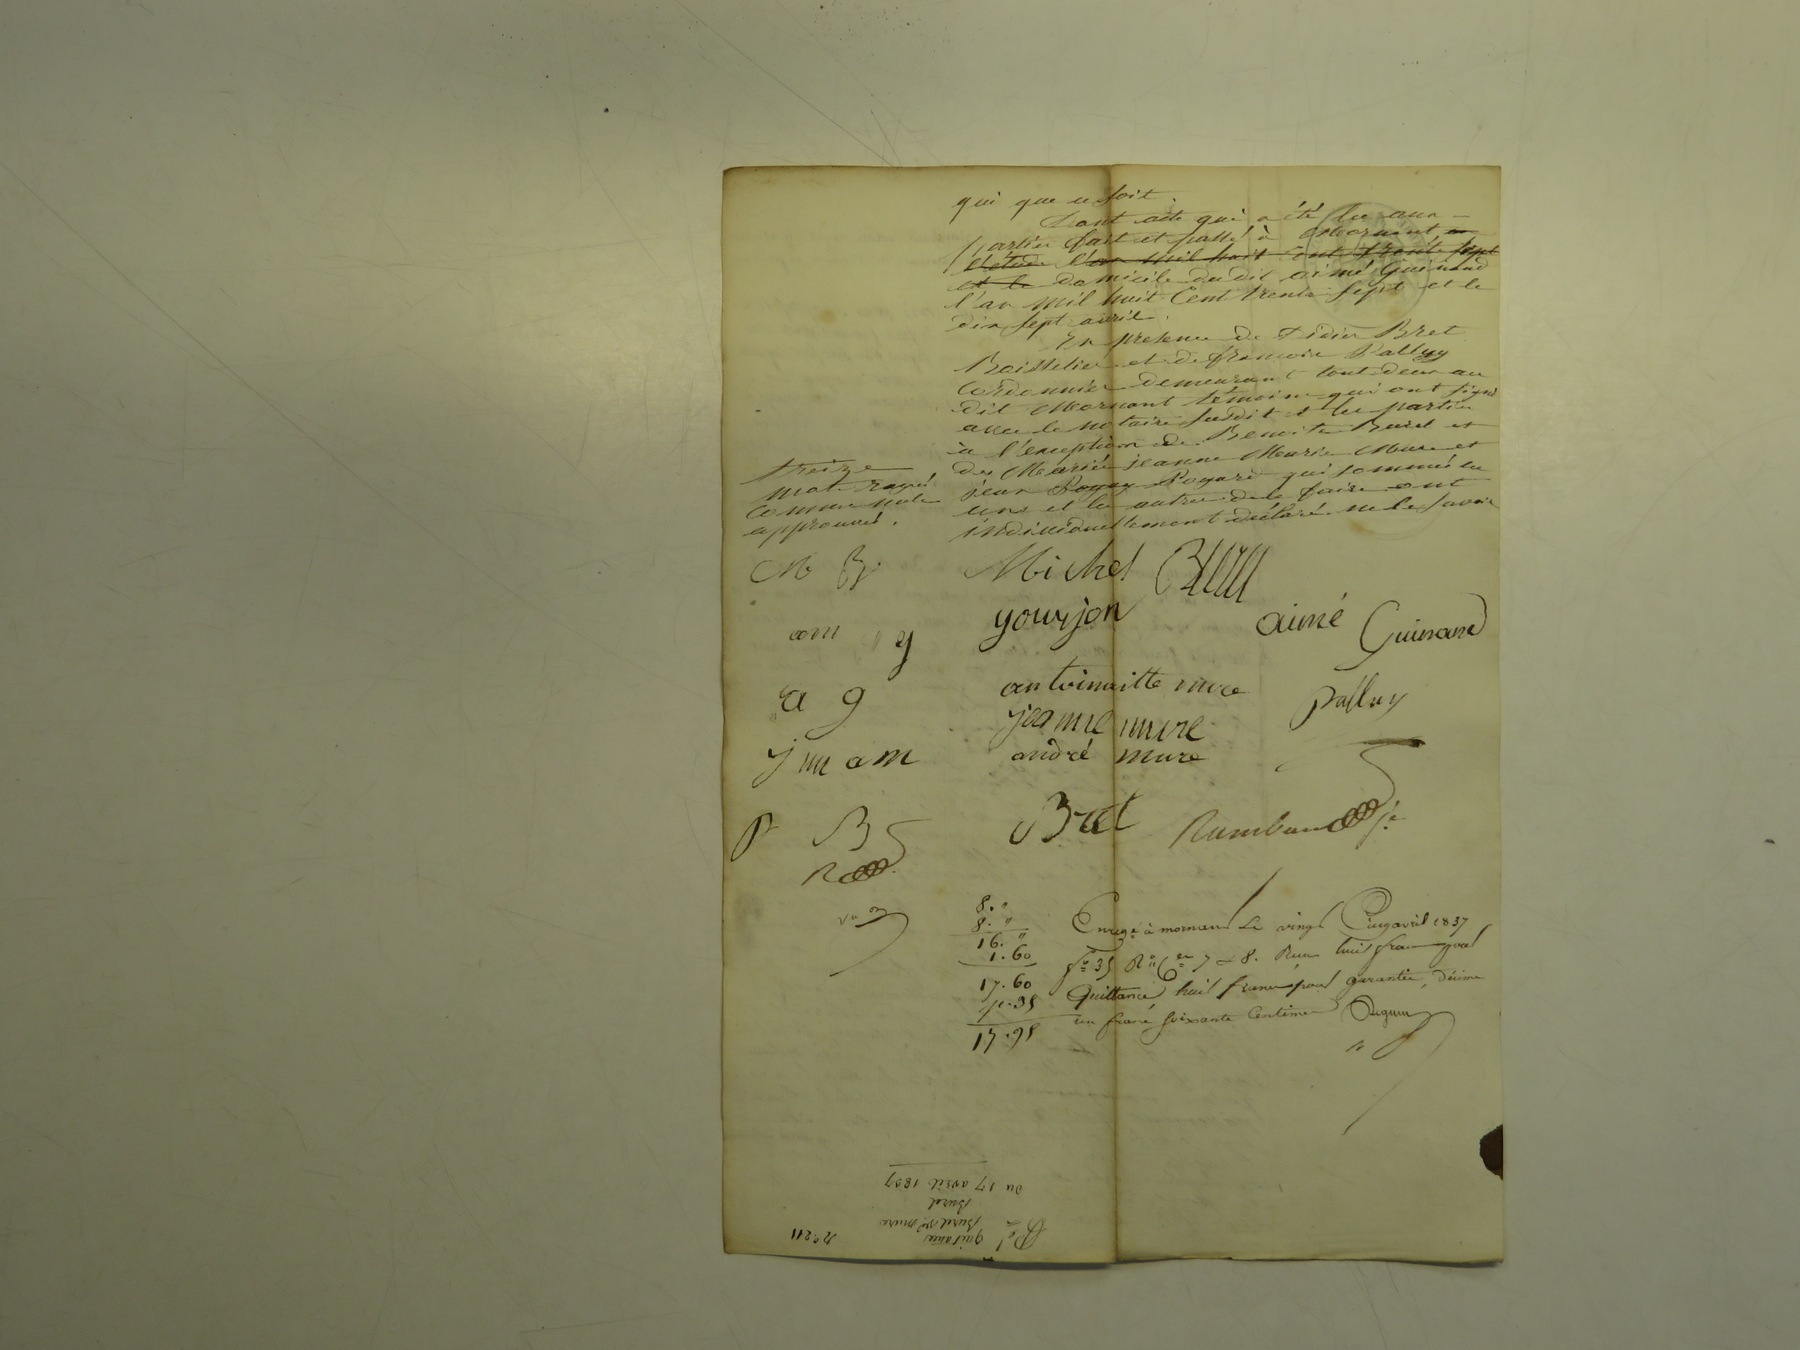 qui que ce soit.
Dont acte qui a été lu aux
parties fait et passé à Mornant en
l'étude l'an mil huit Cent trente sept
et le domicile du dit aimé Guinand
l'an mil huit Cent trente sept et le
dix sept avril.
En presence de Didier Bret
Boisselier et de francois Palluy
Cordonnier demeurant tout deux au
dit Mornant témoins qui ont signé
avec le notaire susdit et les parties
à l'exception de Benoite Burel et
des Mariés jeanne Marie Mure et
jean Poyay Poyard qui sommés les
uns et les autres de le faire ont
individuellement déclaré ne le savoir
treize
mots rayés
comme nuls
approuvés.
M B
Michel
gourjon
aimé Guinand
am g
a g
antoinette mure
Palluy
jeanne mure
j m a m
andré mure
P B
Bret
R
8. "
8. "
16. "
1. 60
17. 60
35
17. 95
Enregé à mornant Le vingt Cinq avril 1837
fo 35 Ro Cses 7 et 8. Reçu huit francs pour
Quittance huit francs pour garantie, décime
un franc soixante Centimes
No 211
quitance
Burel né mure
Burel
du 17 avril 1837